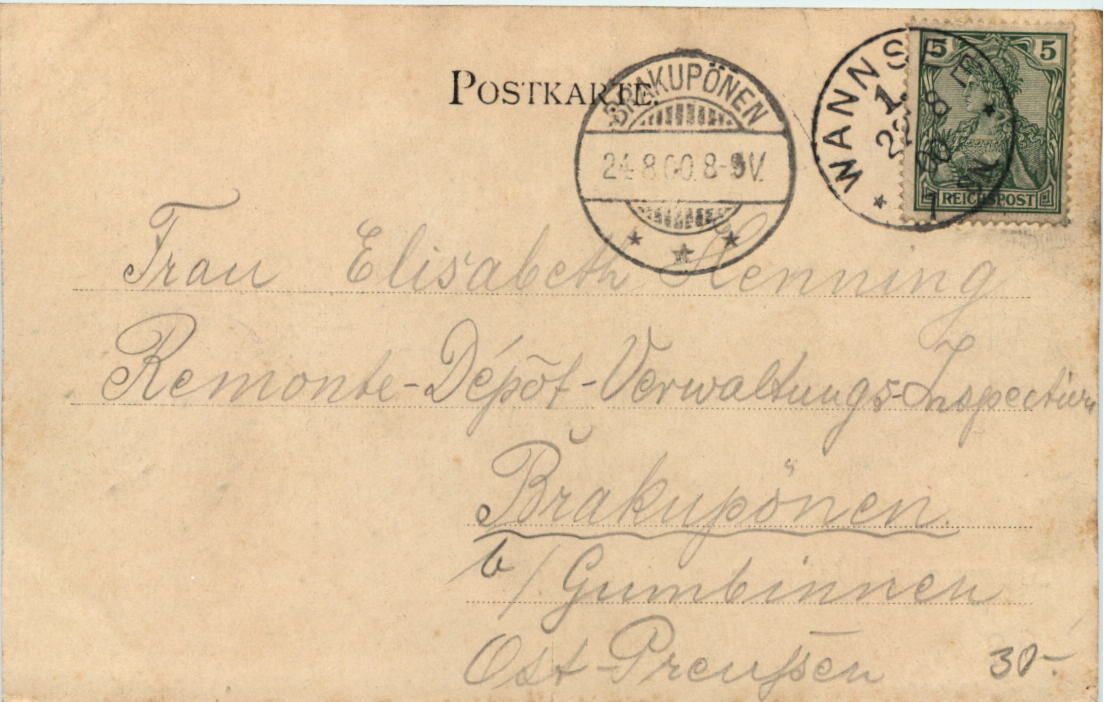 POSTKARTE.
BRAKUPÖNEN
24.8.00.8-9V.
WANNSEE
1.
8
00
5 5
REICHSPOST
Frau Elisabeth Henning
Remonte-Dépôt-Verwaltungs-Inspectiun
Brakupönen.
b/Gumbinnen
Ost-Preußen
30-